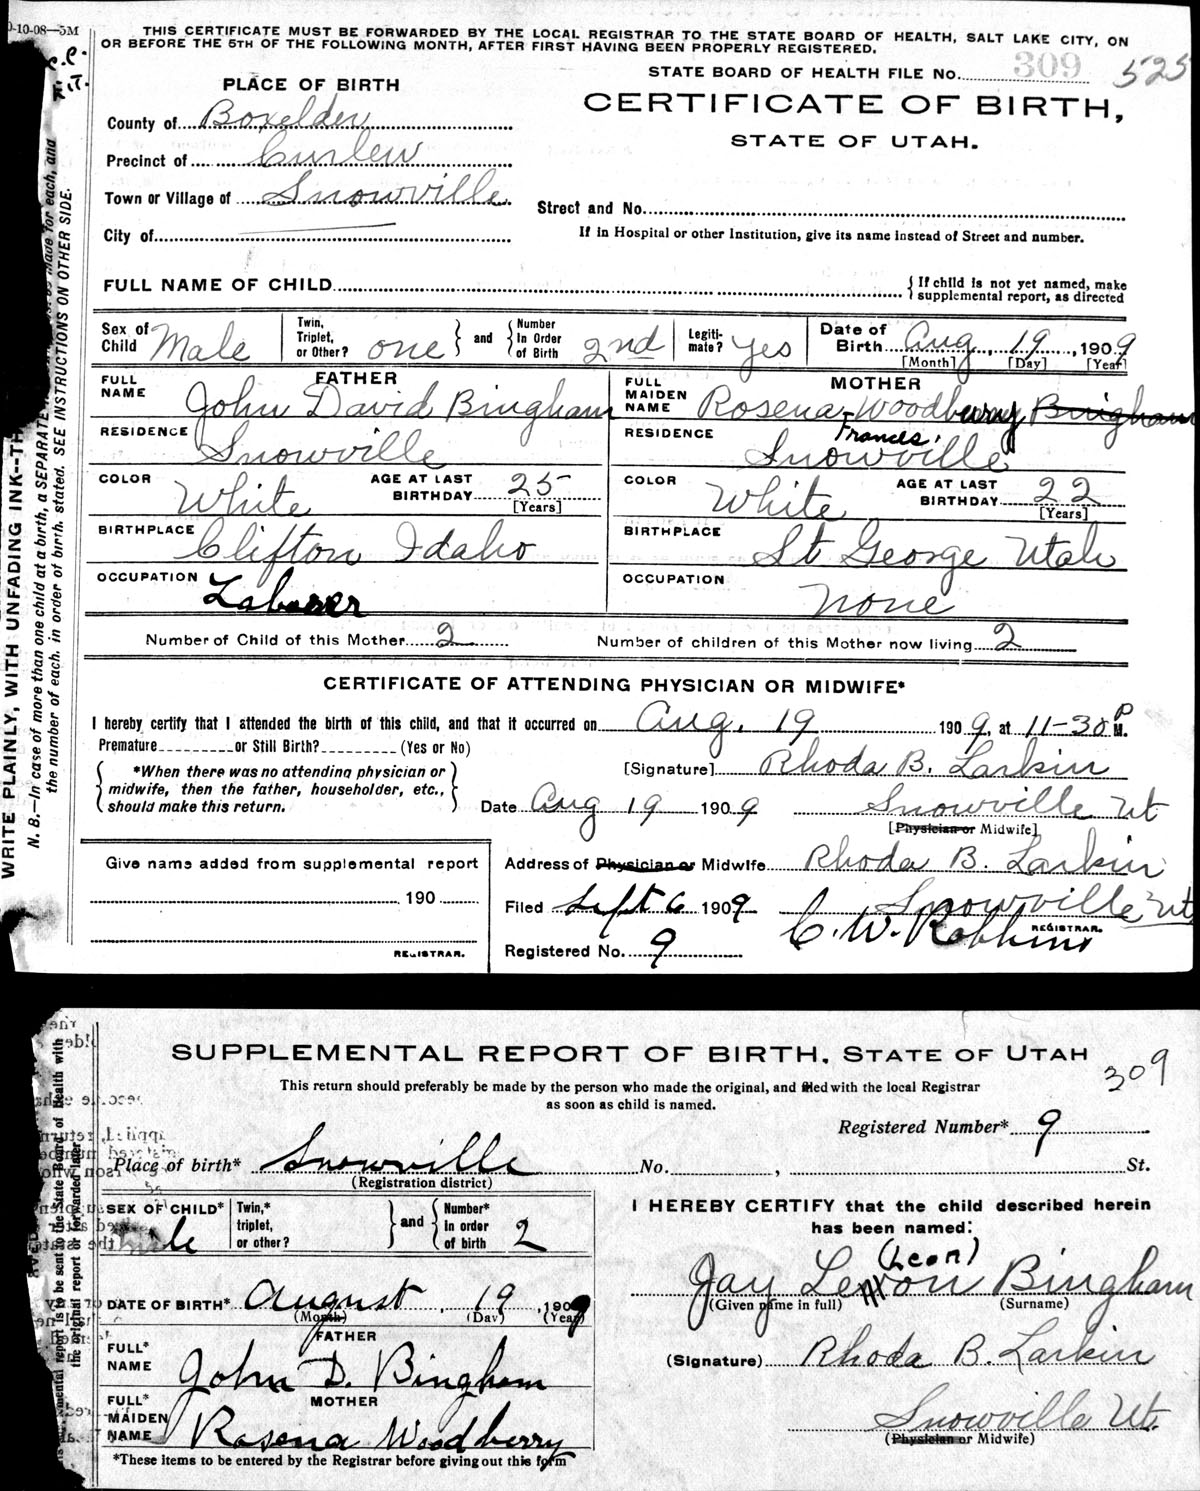 0-10-08—5M
THIS CERTIFICATE MUST BE FORWARDED BY THE LOCAL REGISTRAR TO THE STATE BOARD OF HEALTH, SALT LAKE CITY, ON
OR BEFORE THE 5TH OF THE FOLLOWING MONTH, AFTER FIRST HAVING BEEN PROPERLY REGISTERED.
STATE BOARD OF HEALTH FILE No. 309 525
PLACE OF BIRTH
CERTIFICATE OF BIRTH,
STATE OF UTAH.
County of Boxelder
Precinct of Curlew
Town or Village of Snowville
Street and No.
City of
If in Hospital or other Institution, give its name instead of Street and number.
FULL NAME OF CHILD
{ If child is not yet named, make
supplemental report, as directed
Sex of Child Male
Twin, Triplet, or Other? one } and { Number In Order of Birth 2nd
Legiti-mate? yes
Date of Birth Aug, 19, 1909
[Month] [Day] [Year]
FATHER
FULL NAME John David Bingham
MOTHER
FULL MAIDEN NAME Rosena Woodberry Bingham
Frances.
RESIDENCE Snowville
RESIDENCE Snowville
COLOR White AGE AT LAST BIRTHDAY 25 [Years]
COLOR White AGE AT LAST BIRTHDAY 22 [Years]
BIRTHPLACE Clifton Idaho
BIRTHPLACE St George Utah
OCCUPATION Laborer
OCCUPATION none
Number of Child of this Mother 2 Number of children of this Mother now living 2
CERTIFICATE OF ATTENDING PHYSICIAN OR MIDWIFE*
I hereby certify that I attended the birth of this child, and that it occurred on Aug, 19 1909, at 11-30 P M.
Premature or Still Birth? (Yes or No)
{ *When there was no attending physician or
midwife, then the father, householder, etc.,
should make this return. }
[Signature] Rhoda B. Larkin
Date Aug 19 1909 Snowville Ut
[Physician or Midwife]
Give name added from supplemental report
190
REGISTRAR.
Address of Physician or Midwife Rhoda B. Larkin
Snowville Ut
Filed Sept 6 1909 C. W. Robbins
REGISTRAR.
Registered No. 9
WRITE PLAINLY, WITH UNFADING INK--TH
N. B.—In case of more than one child at a birth, a SEPARATE made for each, and
the number of each, in order of birth, stated. SEE INSTRUCTIONS ON OTHER SIDE.
SUPPLEMENTAL REPORT OF BIRTH, STATE OF UTAH
309
This return should preferably be made by the person who made the original, and filed with the local Registrar
as soon as child is named.
Registered Number* 9
Place of birth* Snowville No. , St.
(Registration district)
SEX OF CHILD*
Twin,* triplet, or other? } and { Number* In order of birth 2
DATE OF BIRTH* August, 19, 1909
(Month) (Day) (Year)
FATHER
FULL* NAME John D. Bingham
MOTHER
FULL* MAIDEN NAME Rosena Woodberry
*These items to be entered by the Registrar before giving out this form
I HEREBY CERTIFY that the child described herein
has been named:
(Leon)
Jay Lexon Bingham
(Given name in full) (Surname)
(Signature) Rhoda B. Larkin
Snowville Ut.
(Physician or Midwife)